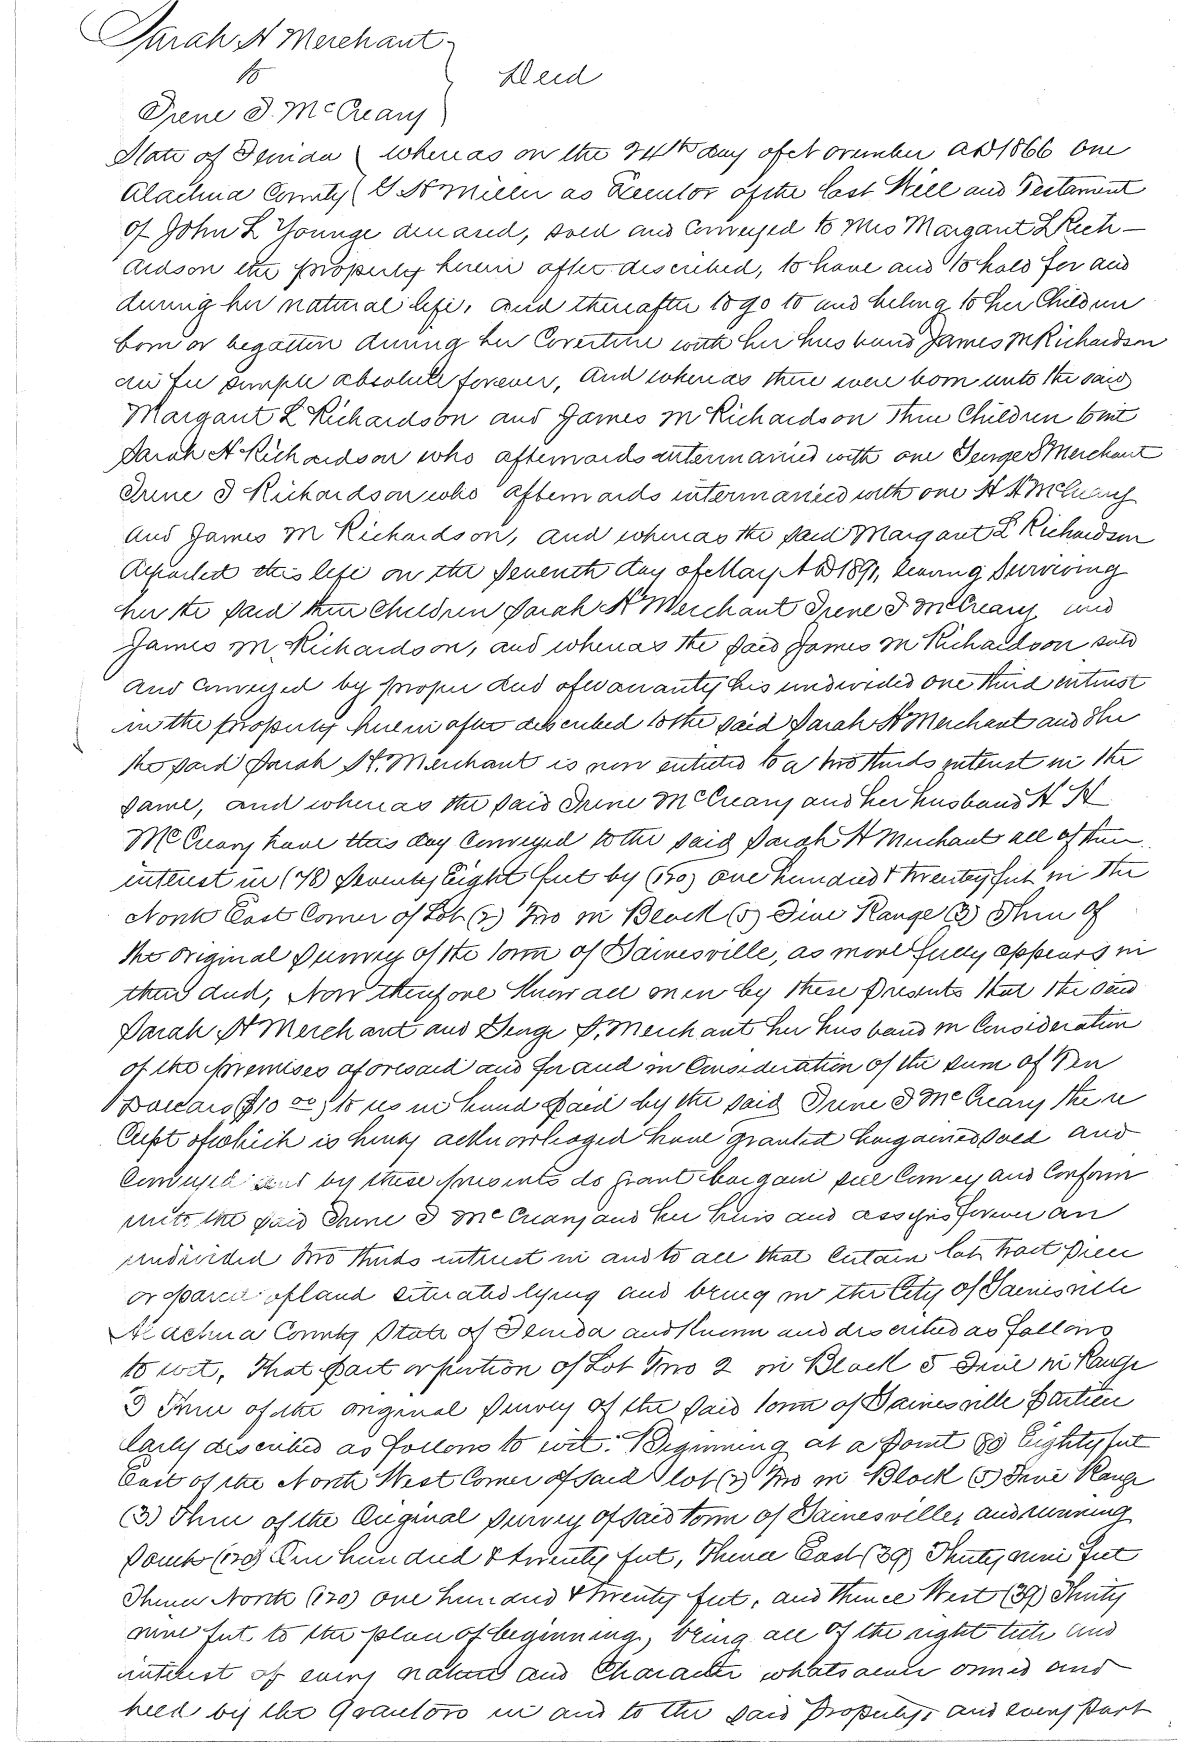 Sarah H Merchant
to
Deed
Irene I. McCreary
State of Florida ( whereas on the 24th day of November AD 1866 one
Alachua County ( G H Miller as Executor of the last Will and Testament
of John L Younge deceased, sold and conveyed to Mrs Margaret L Rich-
ardson the property herein after described, to have and to hold for and
during her natural life, and thereafter to go to and belong to her Children
born or begotten during her Coverture with her husband James M Richardson
in fee simple absolute forever, And whereas there were born unto the said
Margaret L Richardson and James M Richardson Three Children to wit
Sarah H Richardson who afterwards intermarried with one George S Merchant
Irene I Richardson who afterwards intermarried with one H H McCreary
and James M Richardson, and whereas the said Margaret L Richardson
departed this life on the Seventh day of May AD 1891, leaving Surviving
her the said three Children Sarah H Merchant Irene I McCreary and
James M. Richardson, and whereas the said James M Richardson sold
and conveyed by proper deed of warranty his undivided one third interest
in the property herein after described to the said Sarah H Merchant and She
the said Sarah H. Merchant is now entitled to a two thirds interest in the
same, and whereas the said Irene McCreary and her husband H H
McCreary have this day conveyed to the said Sarah H Merchant all of their
interest in (78) Seventy Eight feet by (120) one hundred & twenty feet in the
North East Corner of Lot (2) Two in Block (5) Five Range (3) Three of
the original Survey of the town of Gainesville, as more fully appears in
their deed, Now therefore Know all men by these presents That the said
Sarah H Merchant and George S. Merchant her husband in Consideration
of the premises aforesaid and for and in Consideration of the sum of Ten
Dollars ($10 00) to us in hand paid by the said Irene I McCreary the re
ceipt of which is hereby acknowledged have granted bargained sold and
Conveyed and by these presents do grant bargain sell Convey and Confirm
unto the said Irene I McCreary and her heirs and assigns forever an
undivided two thirds interest in and to all that certain lot tract piece
or parcel of land situated lying and being in the City of Gainesville
Alachua County State of Florida and Known and described as follows
to wit, That part or portion of Lot Two 2 in Block 5 Five in Range
3 Three of the original Survey of the said town of Gainesville particu
larly described as follows to wit: Beginning at a point 80 Eighty feet
East of the North West Corner of said lot (2) Two in Block (5) Five Range
(3) Three of the Original Survey of said town of Gainesville, and running
South (120) One hundred & twenty feet, Thence East (39) Thirty nine feet
Thence North (120) one hundred & twenty feet, and thence West (39) Thirty
nine feet to the place of beginning, being all of the right title and
interest of every nature and Character whatsoever owned and
held by the Grantors in and to the said property, and every part